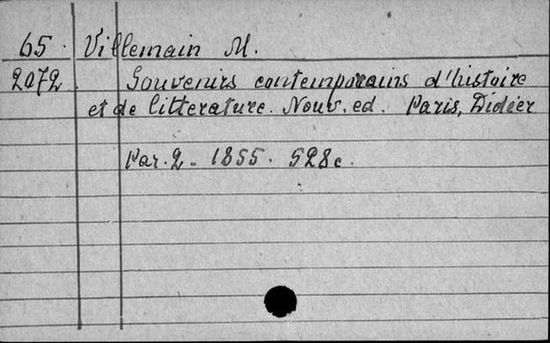 65. Villemain M.
2072. Souvenirs contemporains d'histoire
et de litterature. Nouv. ed. Paris, Didier
Par. 2. 1855. 528c.